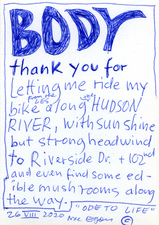 BODY
thank you for
Letting me ride my
bike along HUDSON
RIVER, with sunshine
but strong headwind
to Riverside Dr. + 102nd
and even find some ed-
ible mushrooms along
the way. "ODE TO LIFE"
26 VIII 2020 NYC
©